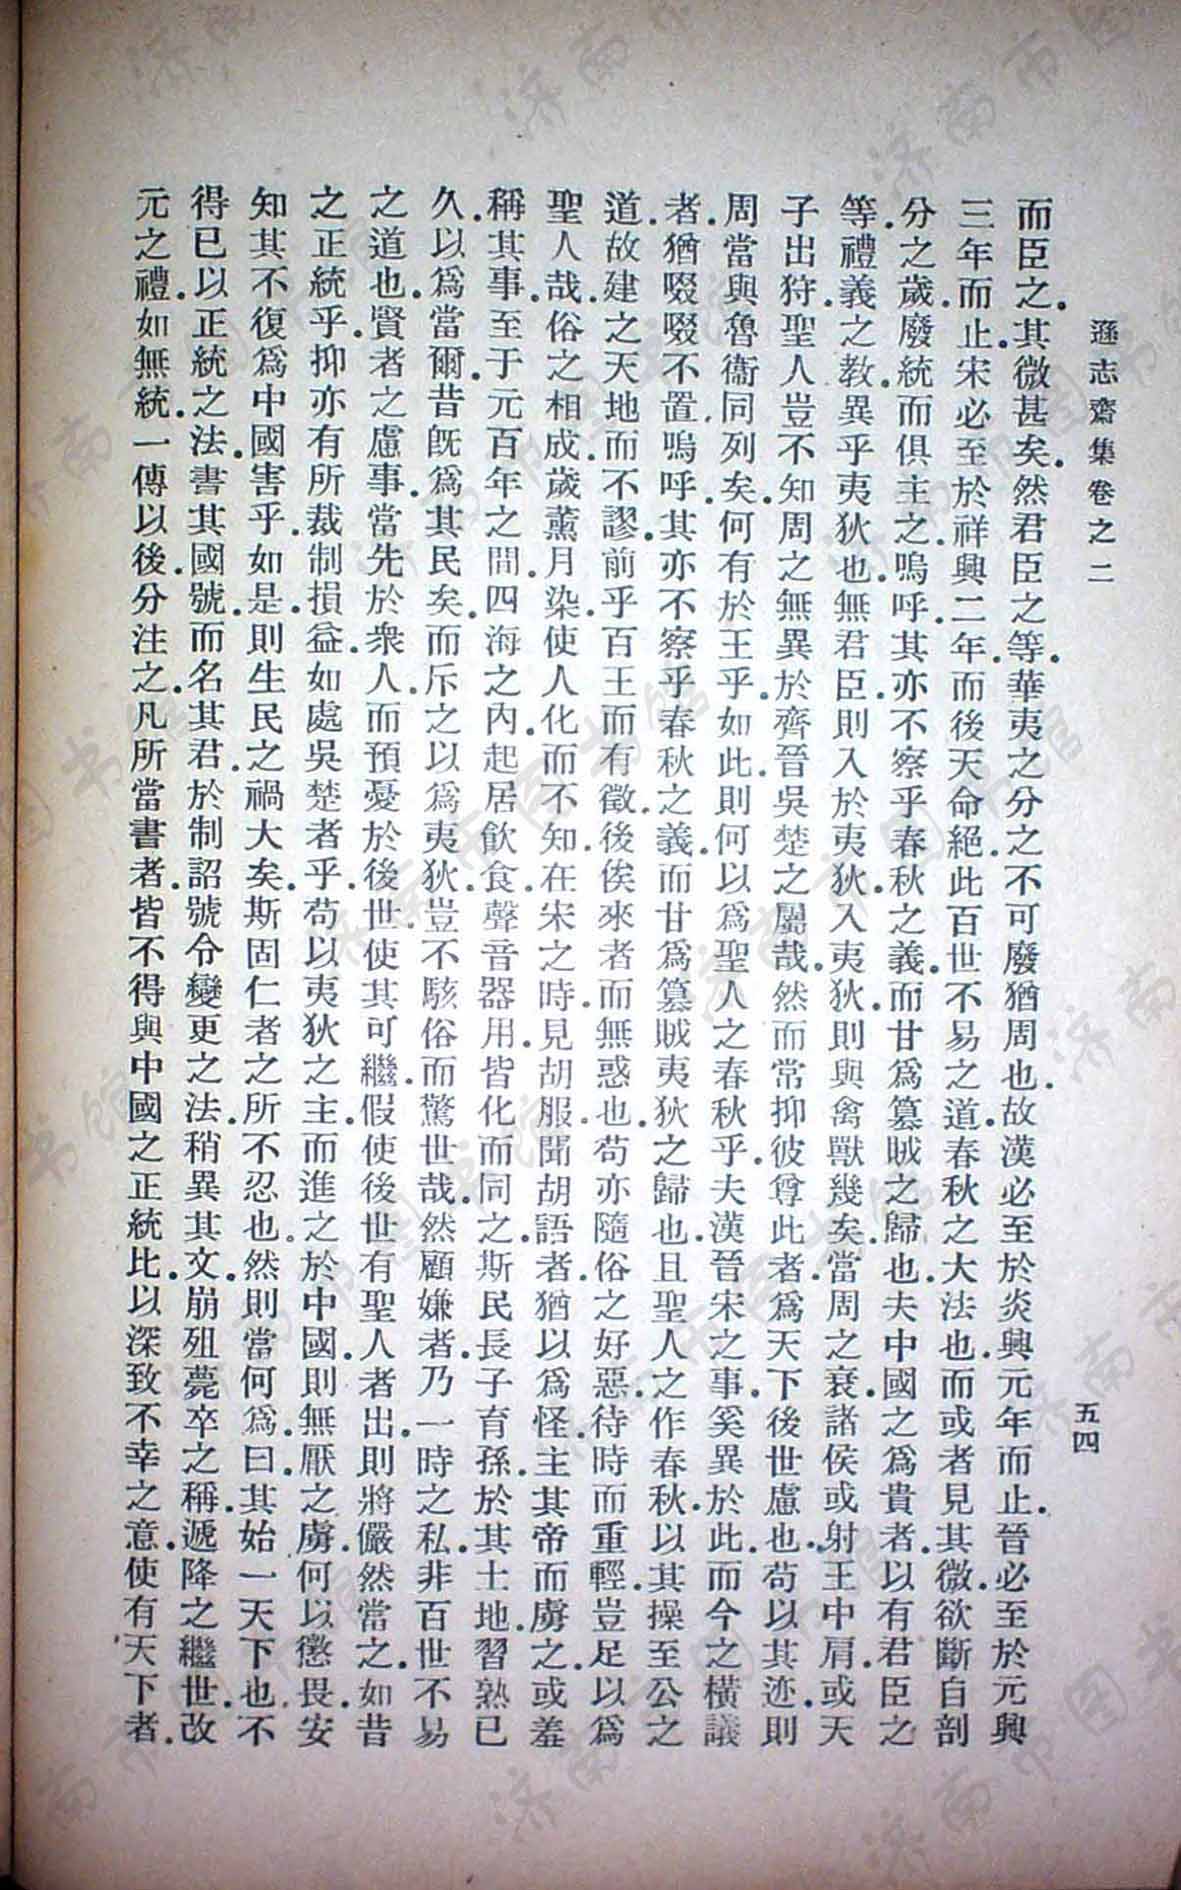 遜志齋集卷之二
五四
而臣之.其微甚矣.然君臣之等.華夷之分之不可廢猶周也.故漢必至於炎興元年而止.晉必至於元興
三年而止.宋必至於祥興二年.而後天命絕.此百世不易之道.春秋之大法也.而或者見其微.欲斷自剖
分之歲.廢統而俱主之.嗚呼.其亦不察乎春秋之義.而甘爲篡賊之歸也.夫中國之爲貴者.以有君臣之
等.禮義之教.異乎夷狄也.無君臣.則入於夷狄.入夷狄.則與禽獸幾矣.當周之衰.諸侯或射王中肩.或天
子出狩.聖人豈不知周之無異於齊晉吳楚之屬哉.然而常抑彼尊此者.爲天下後世慮也.苟以其迹.則
周當與魯衞同列矣.何有於王乎.如此.則何以爲聖人之春秋乎.夫漢晉宋之事.奚異於此.而今之橫議
者.猶啜啜不置.嗚呼.其亦不察乎春秋之義.而甘爲篡賊夷狄之歸也.且聖人之作春秋.以其操至公之
道.故建之天地而不謬.前乎百王而有徵.後俟來者而無惑也.苟亦隨俗之好惡.待時而重輕.豈足以爲
聖人哉.俗之相成.歲薰月染.使人化而不知.在宋之時.見胡服.聞胡語者.猶以爲怪.主其帝而虜之.或羞
稱其事.至于元百年之間.四海之內.起居飲食.聲音器用.皆化而同之.斯民長子育孫.於其土地.習熟已
久.以爲當爾.昔旣爲其民矣.而斥之以爲夷狄.豈不駭俗而驚世哉.然顧嫌者.乃一時之私.非百世不易
之道也.賢者之慮事.當先於衆人.而預憂於後世.使其可繼.假使後世有聖人者出.則將儼然當之.如昔
之正統乎.抑亦有所裁制損益.如處吳楚者乎.苟以夷狄之主.而進之於中國.則無厭之虜.何以懲畏.安
知其不復爲中國害乎.如是.則生民之禍大矣.斯固仁者之所不忍也.然則當何爲.曰.其始一天下也.不
得已以正統之法.書其國號.而名其君.於制詔號令變更之法.稍異其文.崩殂薨卒之稱.遞降之.繼世.改
元之禮.如無統.一傳以後.分注之.凡所當書者.皆不得與中國之正統比.以深致不幸之意.使有天下者.